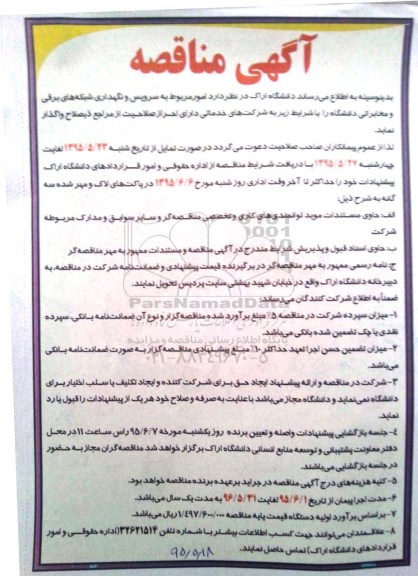 آگهی مناقصه
بدینوسیله به اطلاع می‌رساند دانشگاه اراک در نظر دارد امور مربوط به سرویس و نگهداری شبکه‌های برقی
و مخابراتی دانشگاه را با شرایط زیر به شرکت‌های خدماتی دارای احراز صلاحیت از مراجع ذیصلاح واگذار
نماید.
لذا از عموم پیمانکاران صاحب صلاحیت دعوت می گردد در صورت تمایل از تاریخ شنبه ۱۳۹۵/۵/۲۳ لغایت
چهارشنبه ۱۳۹۵/۵/۲۷ با دریافت شرایط مناقصه از اداره حقوقی و امور قراردادهای دانشگاه اراک،
پیشنهادات خود را حداکثر تا آخر وقت اداری روز شنبه مورخ ۱۳۹۵/۶/۶ در پاکت‌های لاک و مهر شده سه
گانه به شرح ذیل:
الف: حاوی مستندات موید توانمندی‌های کاری و تخصصی مناقصه‌گر و سایر سوابق و مدارک مربوطه
شرکت
ب: حاوی اسناد قبول و پذیرش شرایط مندرج در آگهی مناقصه و مستندات ممهور به مهر مناقصه‌گر
ج: نامه رسمی ممهور به مهر مناقصه‌گر در برگیرنده قیمت پیشنهادی و ضمانت‌نامه شرکت در مناقصه، به
دبیرخانه دانشگاه اراک واقع در خیابان شهید بهشتی سایت پردیس تحویل نمایند.
ضمناً به اطلاع شرکت کنندگان می‌رساند:
۱- میزان سپرده شرکت در مناقصه ۵٪ مبلغ برآورد شده مناقصه‌گزار و نوع آن ضمانت‌نامه بانکی، سپرده
نقدی یا چک تضمین شده بانکی می‌باشد.
۲- میزان تضمین حسن اجرا تعهد حداکثر ۱۰٪ مبلغ پیشنهادی مناقصه‌گزار به صورت ضمانت‌نامه بانکی
می‌باشد.
۳- شرکت در مناقصه و ارائه پیشنهاد ایجاد حق برای شرکت کننده و ایجاد تکلیف یا سلب اختیار برای
دانشگاه نمی‌نماید و دانشگاه مجاز می‌باشد با عنایت به صرفه و صلاح خود هر یک از پیشنهادات را قبول یا رد
نماید.
۴- جلسه بازگشایی پیشنهادات واصله و تعیین برنده روز یکشنبه مورخه ۹۵/۶/۷ راس ساعت ۱۱ در محل
دفتر معاونت پشتیبانی و توسعه منابع انسانی دانشگاه اراک برگزار خواهد شد مناقصه‌گران مجاز به حضور
در جلسه بازگشایی می‌باشند.
۵- کلیه هزینه‌های درج آگهی مناقصه در جراید بر عهده برنده مناقصه خواهد بود.
۶- مدت اجرا پیمان از تاریخ ۹۵/۶/۱ لغایت ۹۶/۵/۳۱ به مدت یک سال می‌باشد.
۷- بر اساس برآورد اولیه دستگاه قیمت پایه مناقصه ۱/۴۹۷/۶۰۰/۰۰۰ ریال می‌باشد.
۸- علاقمندان می‌توانند جهت کسب اطلاعات بیشتر با شماره تلفن ۳۲۶۲۱۵۱۴ (اداره حقوقی و امور
قراردادهای دانشگاه اراک) تماس حاصل نمایند.
۹۵/۵/۱۸
ParsNamadData
پایگاه اطلاع رسانی مناقصه و مزایده
۰۲۱-۸۸۳۴۹۶۷۰-۵